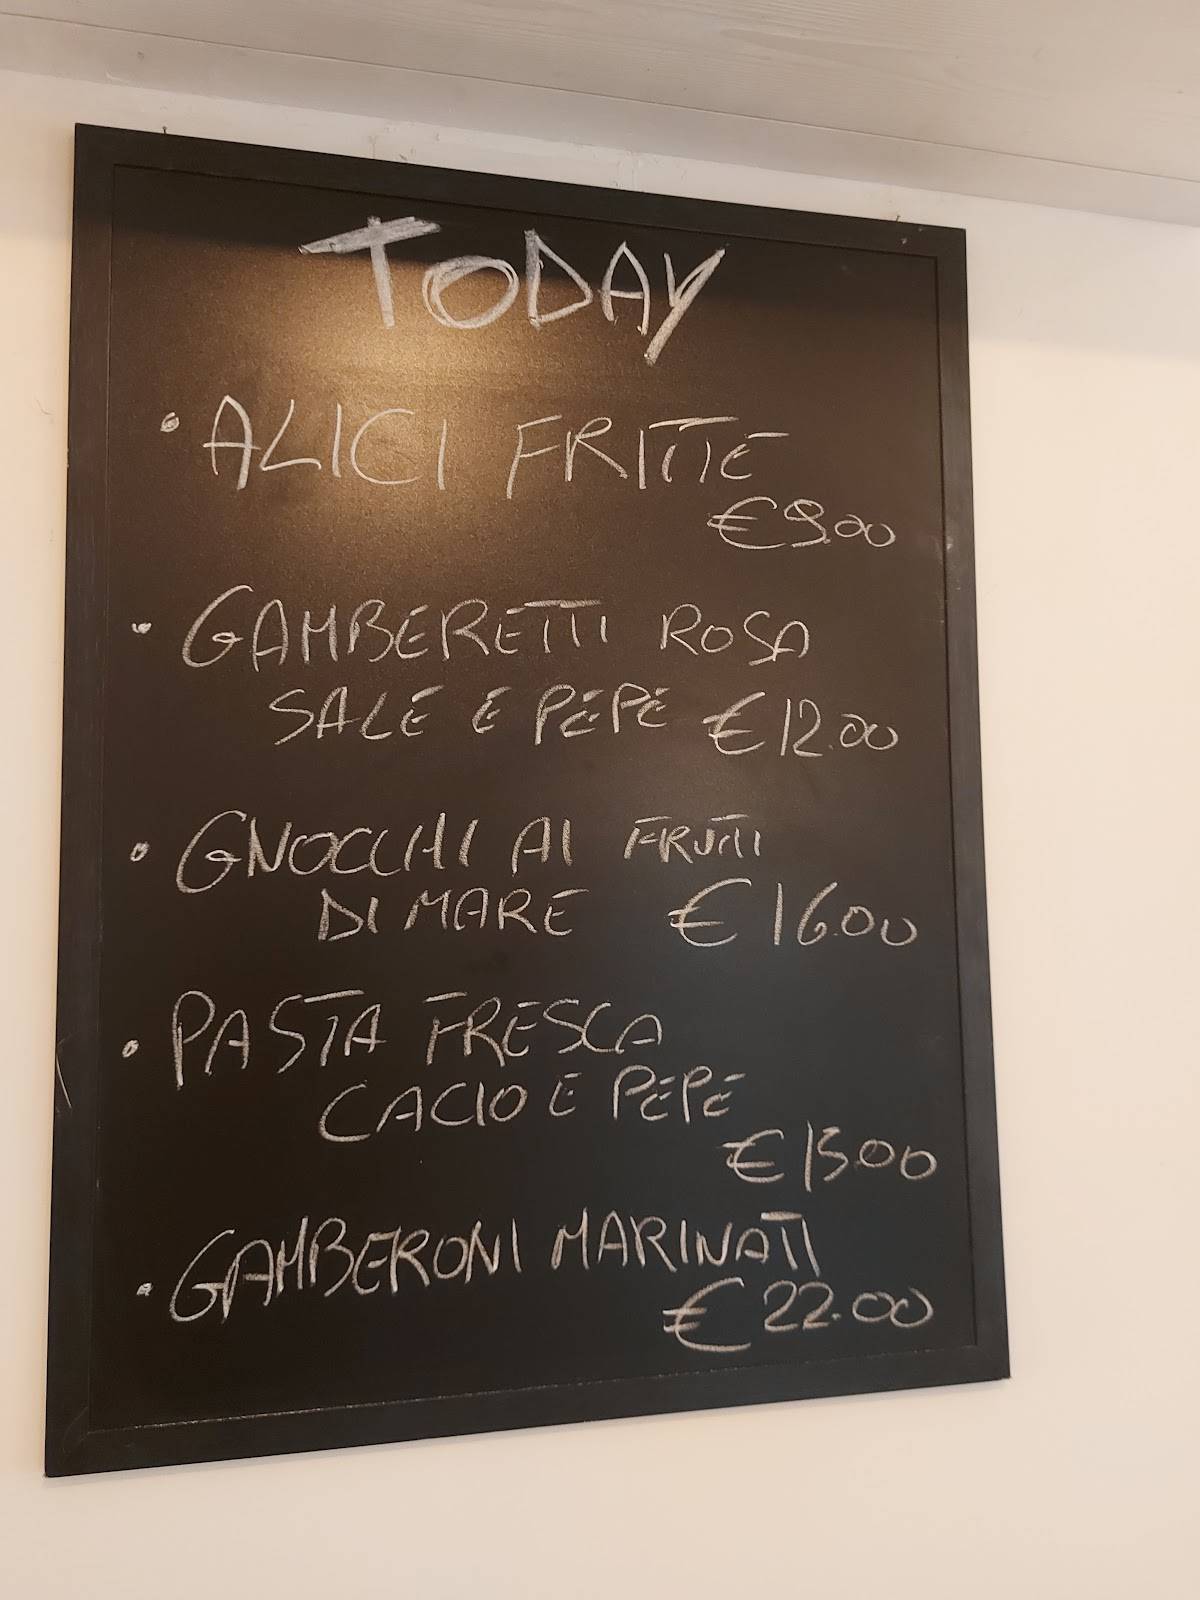 TODAY
• ALICI FRITTE
€9.00
• GAMBERETTI ROSA
SALE E PEPE €12.00
• GNOCCHI AI FRUTTI
DI MARE €16.00
• PASTA FRESCA
CACIO E PEPE
€15.00
• GAMBERONI MARINATI
€22.00